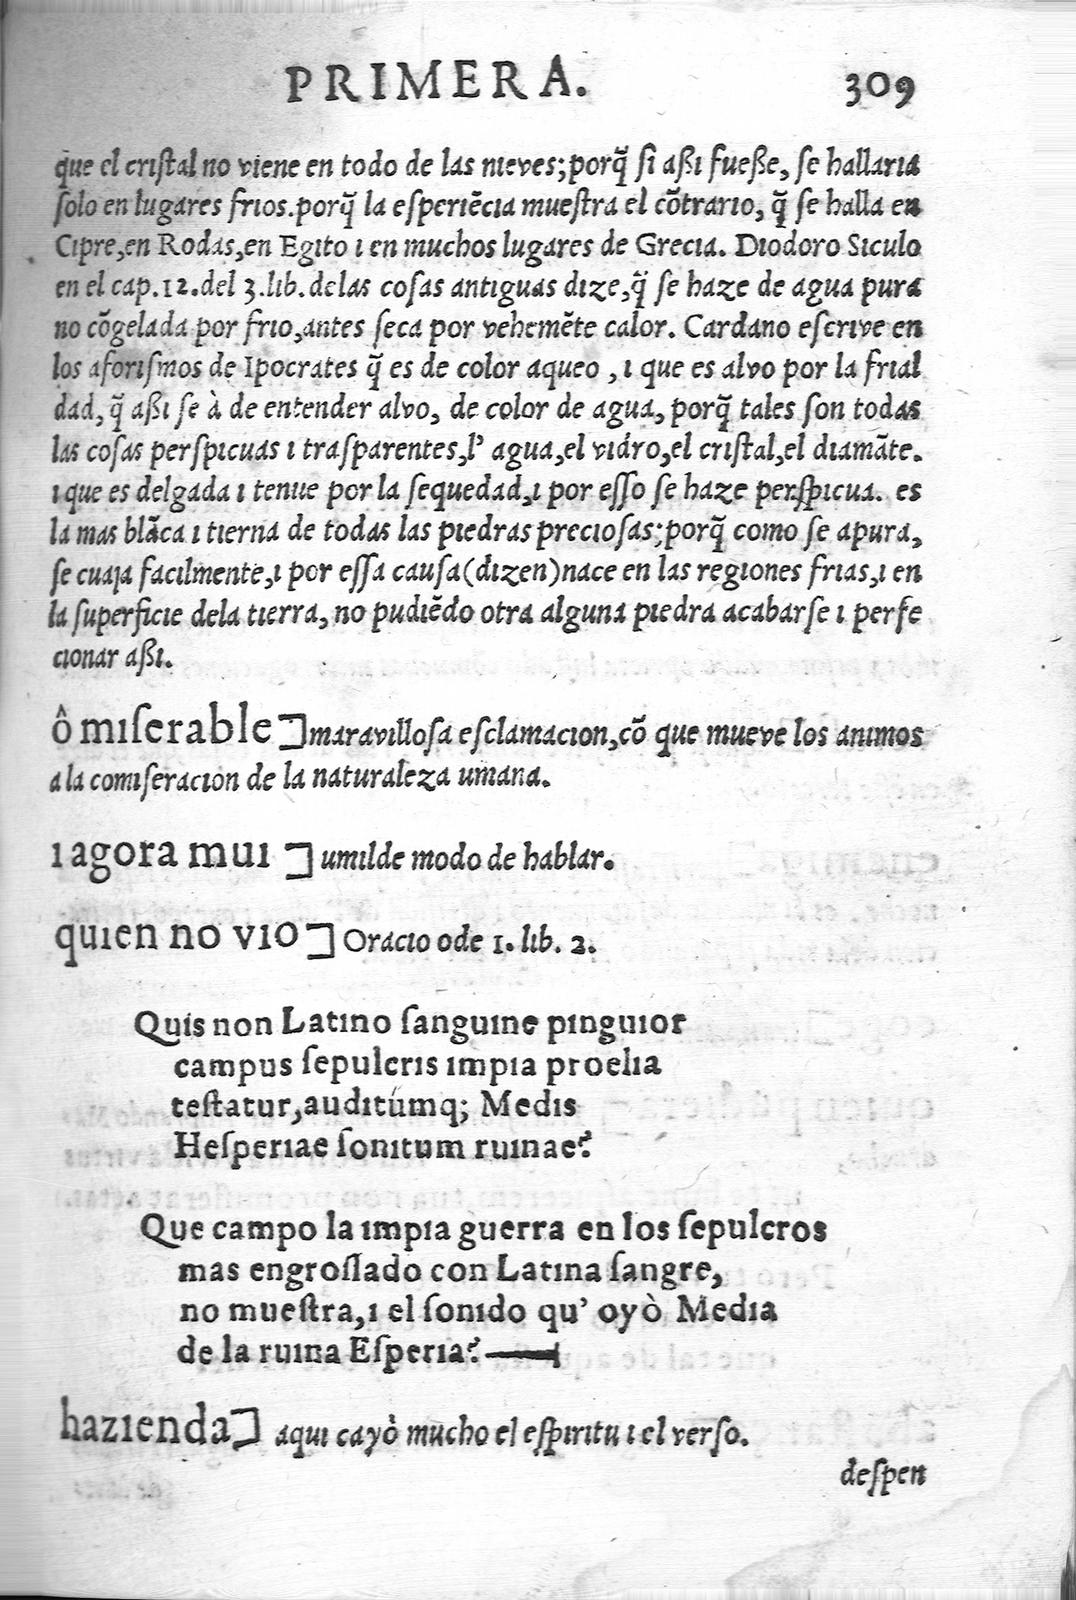 PRIMERA. 309
que el criſtal no viene en todo de las nieves; porq̃ ſi aßi fueße, ſe hallaria
ſolo en lugares frios. porq̃ la eſperiẽcia mueſtra el cõtrario, q̃ ſe halla en
Cipre, en Rodas, en Egito ı en muchos lugares de Grecia. Diodoro Siculo
en el cap. 12. del 3. lib. delas coſas antiguas dize, q̃ ſe haze de agua pura
no cõgelada por frio, antes ſeca por vehemẽte calor. Cardano eſcrive en
los aforiſmos de Ipocrates q̃ es de color aqueo, ı que es alvo por la frial
dad, q̃ aßi ſe à de entender alvo, de color de agua, porq̃ tales ſon todas
las coſas perſpicuas ı traſparentes, l' agua, el vidro, el criſtal, el diamãte.
ı que es delgada ı tenue por la ſequedad, ı por eſſo ſe haze perſpicua. es
la mas blãca ı tierna de todas las piedras precioſas; porq̃ como ſe apura,
ſe cuaja facilmente, ı por eſſa cauſa (dizen) nace en las regiones frias, ı en
la ſuperficie dela tierra, no pudiẽdo otra alguna piedra acabarſe ı perfe
cionar aßi.
ô mıſerable ⊐ maravilloſa eſclamacion, cõ que mueve los animos
a la comiſeracion de la naturaleza umana.
ı agora muı ⊐ umilde modo de hablar.
quıen no vıo ⊐ Oracio ode 1. lib. 2.
Quis non Latıno ſanguıne pınguıor
campus ſepulcrıs ımpıa proelıa
teſtatur, audıtúmq; Medıs
Heſperıae ſonıtum ruınae?
Que campo la ımpıa guerra en los ſepulcros
mas engroſſado con Latına ſangre,
no mueſtra, ı el ſonıdo qu' oyò Medıa
de la ruına Eſperıa?
hazıenda ⊐ aqui cayò mucho el eſpiritu ı el verſo.
deſpen